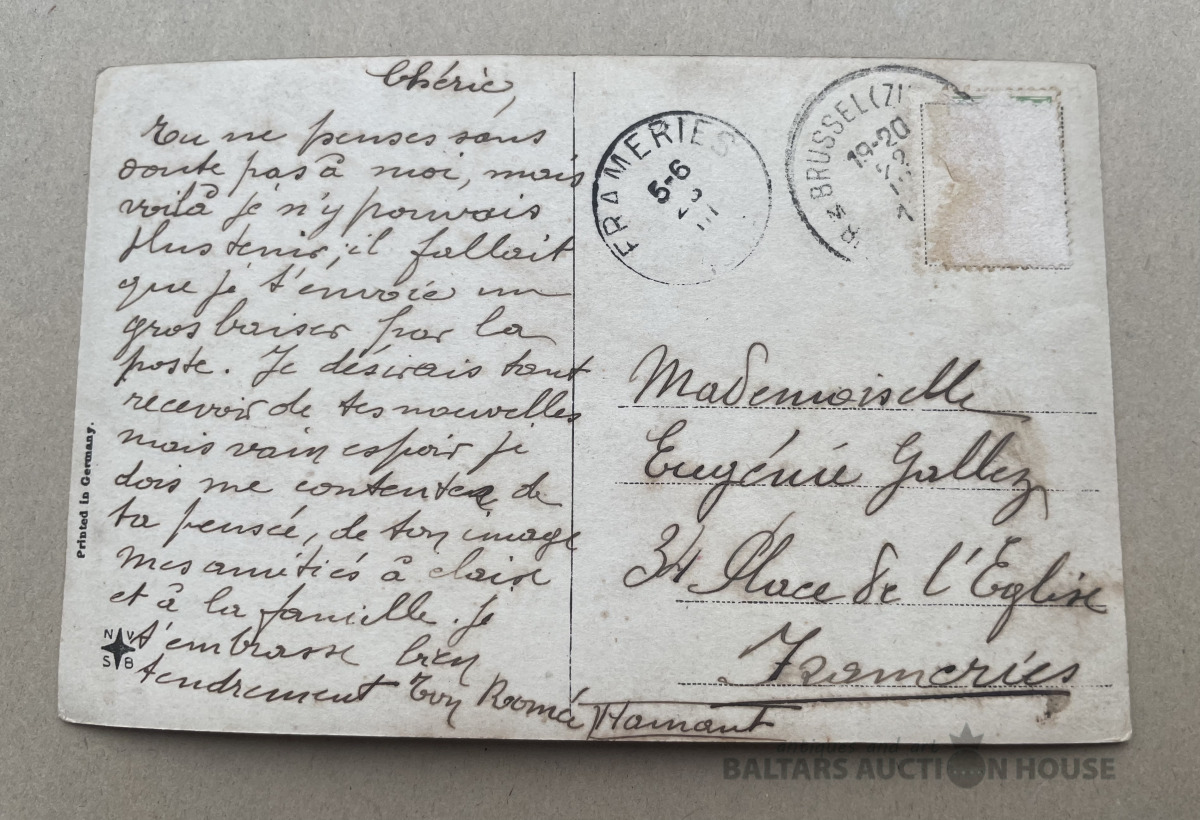 Chérie,
Tu ne penses sans
doute pas à moi, mais
voilà je n'y pouvais
plus tenir, il fallait
que je t'envoie un
gros baiser par la
poste. Je désirais tant
recevoir de tes nouvelles
mais vain espoir je
dois me contenter de
ta pensée, de ton image
mes amitiés à
et à la famille. Je
t'embrasse bien
tendrement Ton Romé
Printed in Germany.
N V
S B
FRAMERIES
5-6
III
BRUSSEL (ZI
19-20
Mademoiselle
Eugénie Gallez
34 Place de l'Eglise
Frameries
Hainaut
antiques and art
BALTARS AUCTION HOUSE